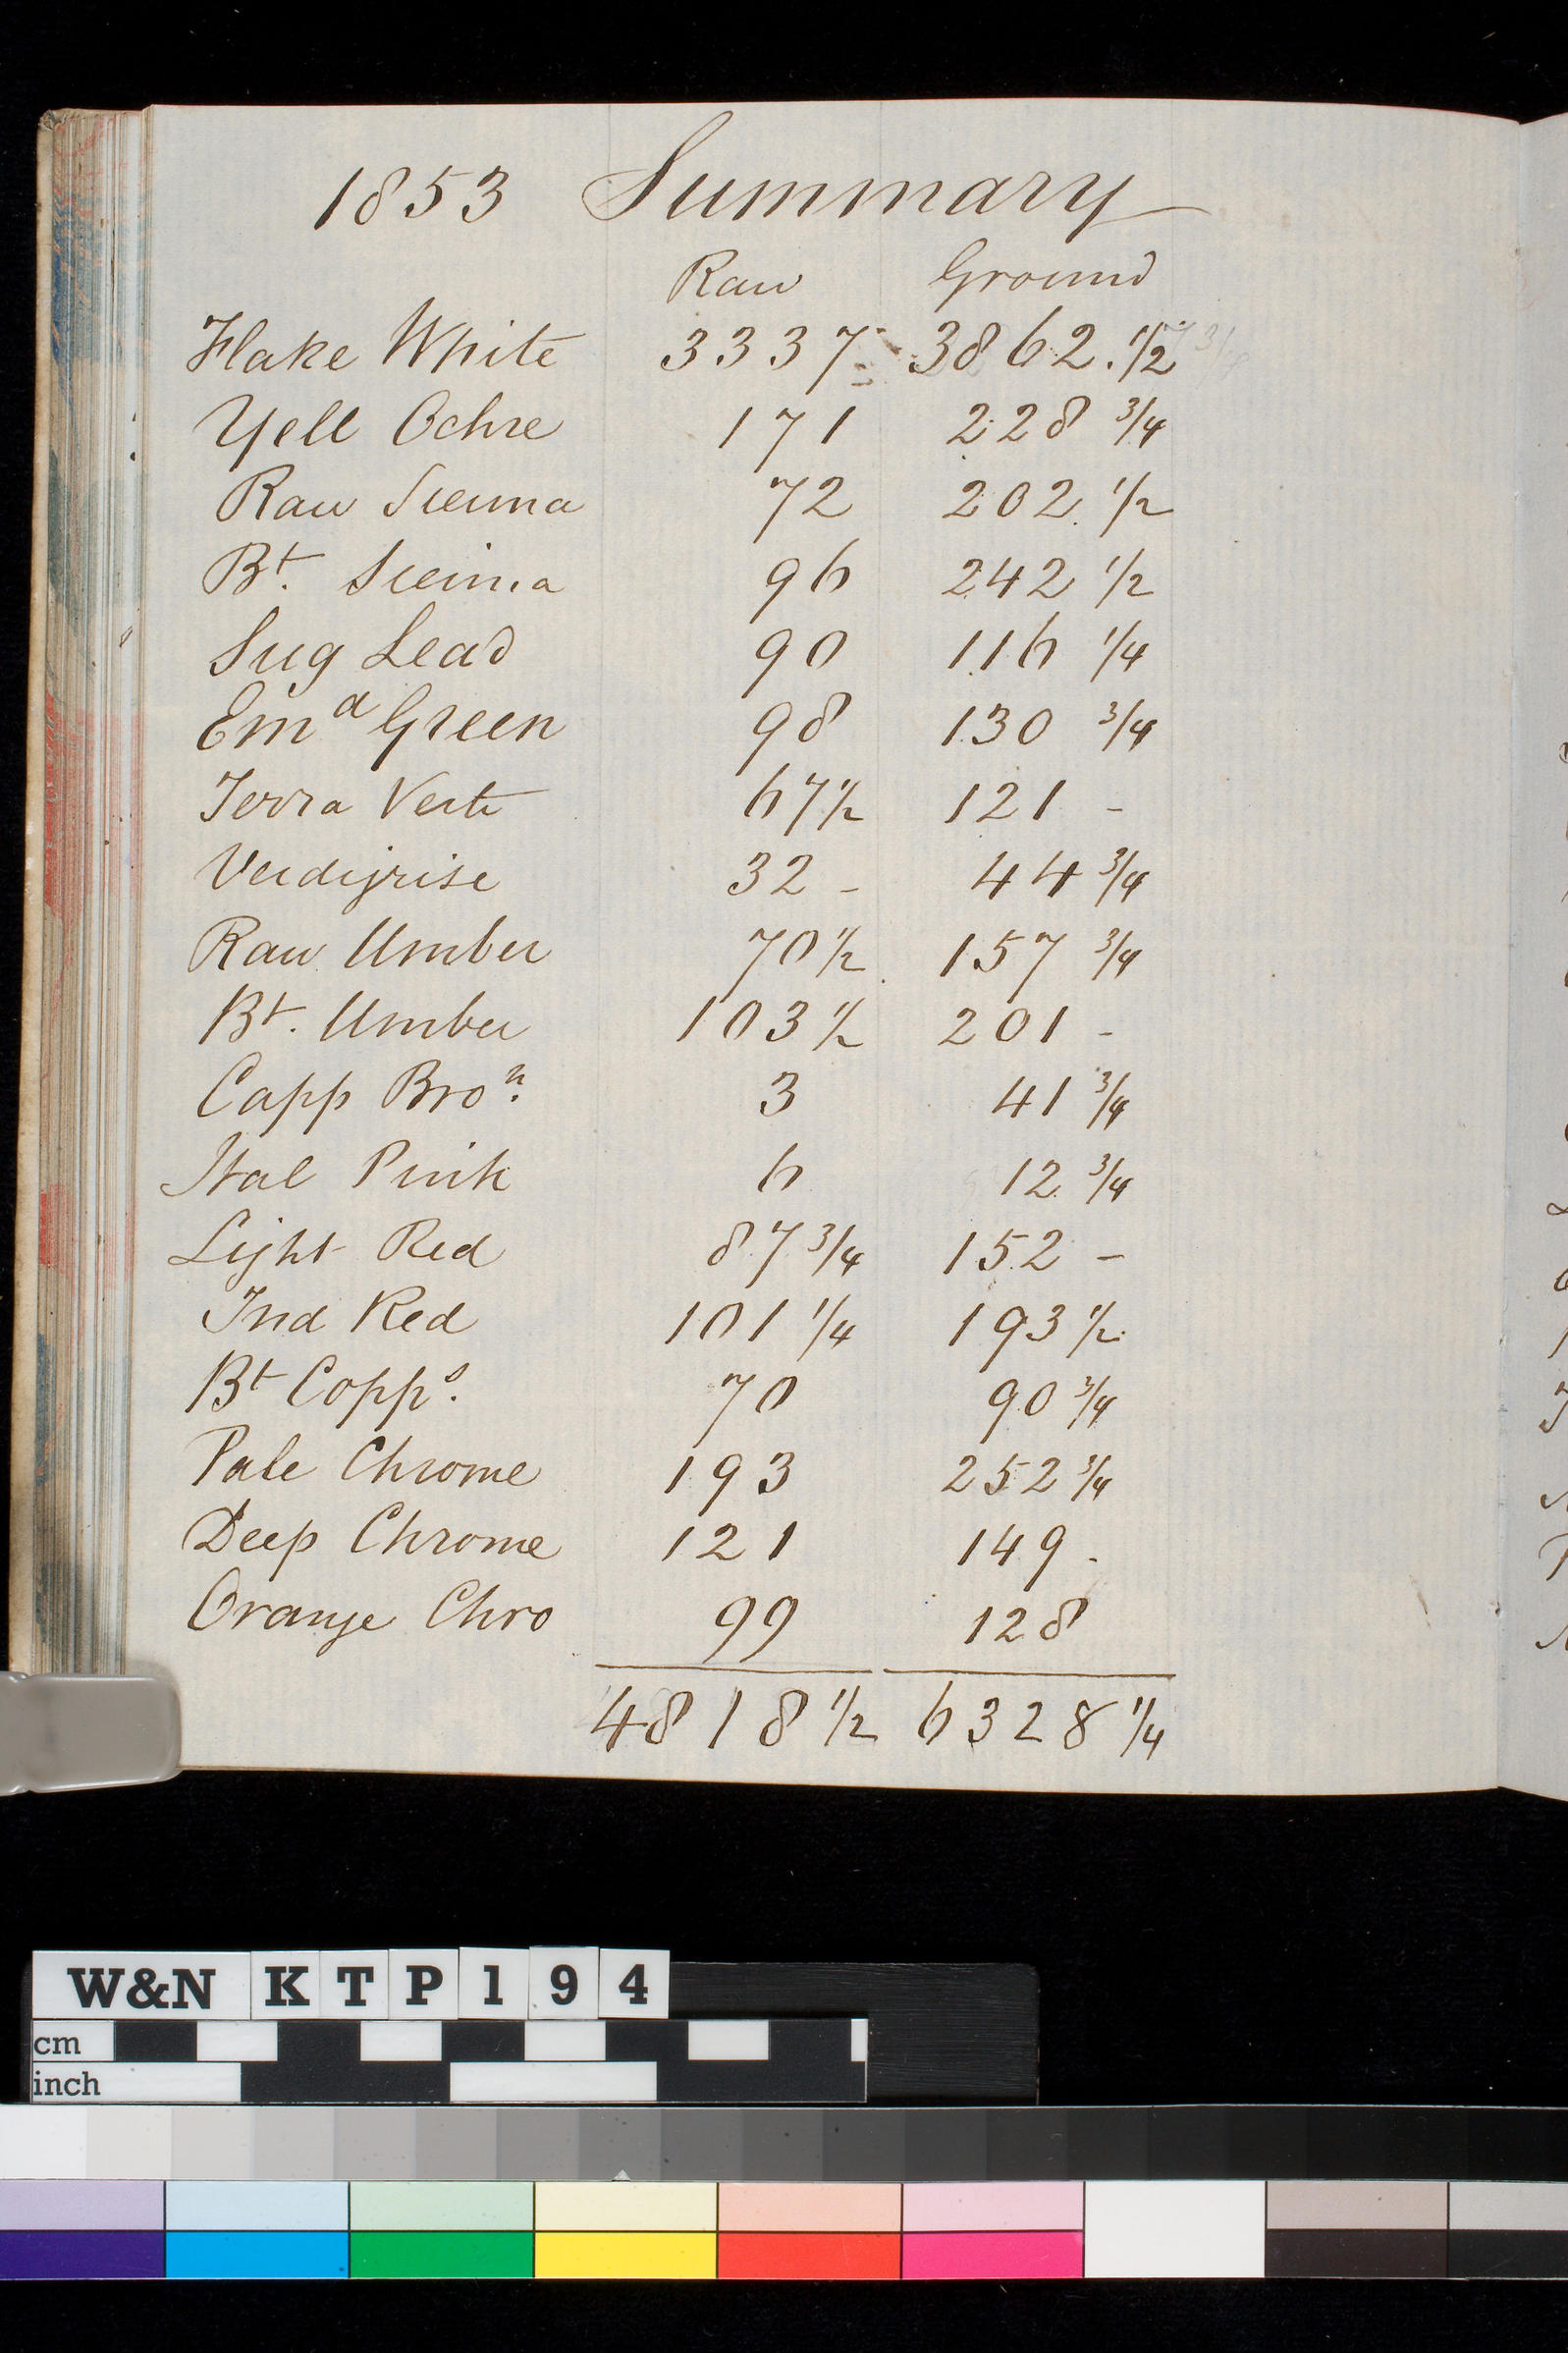 1853 Summary
Raw Ground
Flake White 3337 - 3862.1/2
Yell Ochre 171 228 3/4
Raw Sienna 72 202 1/2
Bt. Sienna 96 242 1/2
Sug Lead 90 116 1/4
Emd Green 98 130 3/4
Terra Verte 67 1/2 121 -
Verdigrise 32 - 44 3/4
Raw Umber 70 1/2 157 3/4
Bt. Umber 103 1/2 201 -
Capp Bron. 3 41 3/4
Ital Pink 6 12 3/4
Light Red 87 3/4 152 -
Ind Red 101 1/4 193 1/2
Bt Copps. 70 90 3/4
Pale Chrome 193 252 3/4
Deep Chrome 121 149 -
Orange Chro 99 128
4818 1/2 6328 1/4
W&N KTP194
cm
inch